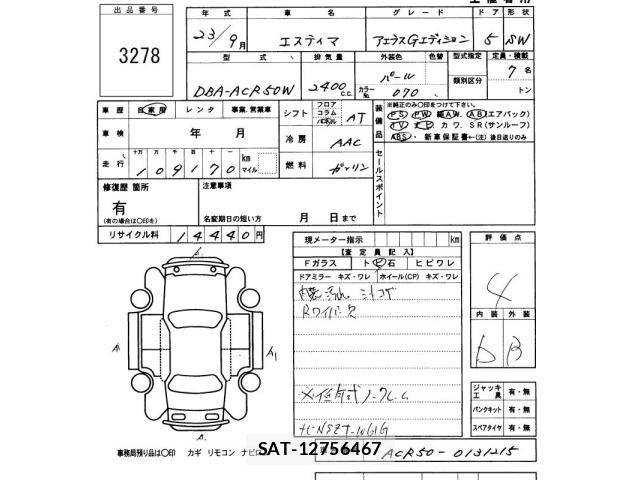 出品番号
3278
年式 車名 グレード ドア 形状
23/9月 エスティマ アエラスGエディション 5 SW
型式 排気量 外装色 色替 型式指定 定員・積載
DBA-ACR50W 2400c.c. パール カラーNo. 070 類別区分 7名 トン
車歴 自家用 レンタ 事業、営業車 シフト フロア コラム パネル AT
装備品 ※純正のみ〇印をつけて下さい。
PS PW AW AB(エアバック)
TV ナビ カワ SR(サンルーフ)
ABS・新車保証書←(注)後日送りのみ
車検 年 月 冷房 AAC
セールスポイント
走行 十万 万 千 百 十 109170 km マイル 燃料 ガソリン
修復歴 箇所 注意事項
有
(有の場合は〇印を) 名変期日の短い方 月 日まで
リサイクル料 14440円
現メーター指示 km 評価点
【査定員記入】
Fガラス ト ビ 石 ヒビワレ
ドアミラー キズ・ワレ ホイール(CP) キズ・ワレ
4
Rワイパー欠
内装 外装
D B
A1 A1
A1
ジャッキ 工具 有・無
パンクキット 有・無
スペアタイヤ 有・無
事務局預り品は〇印 カギ リモコン ナビ
SAT-12756467
ACR50-0131215